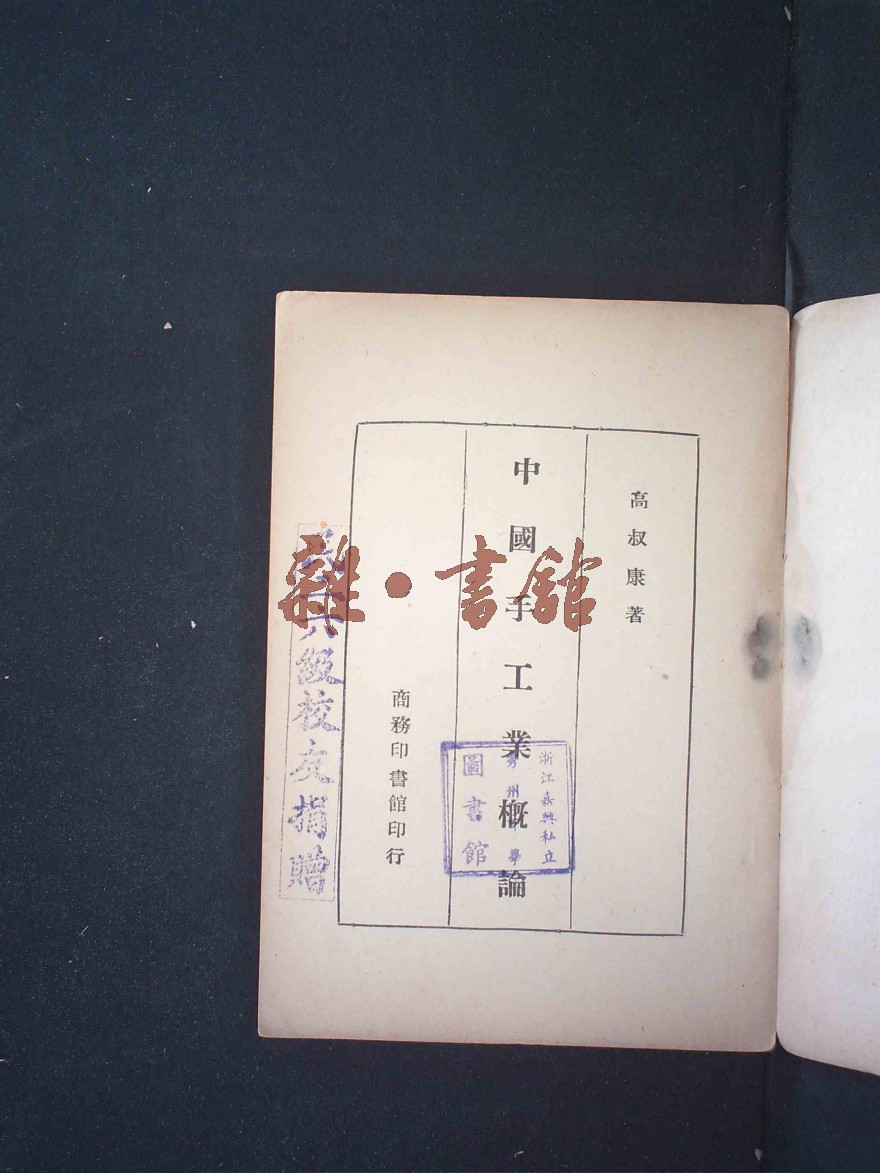 高叔康著
中國手工業概論
商務印書館印行
浙江嘉興私立
秀州中學
圖書館
六級校友捐贈
雜·書館